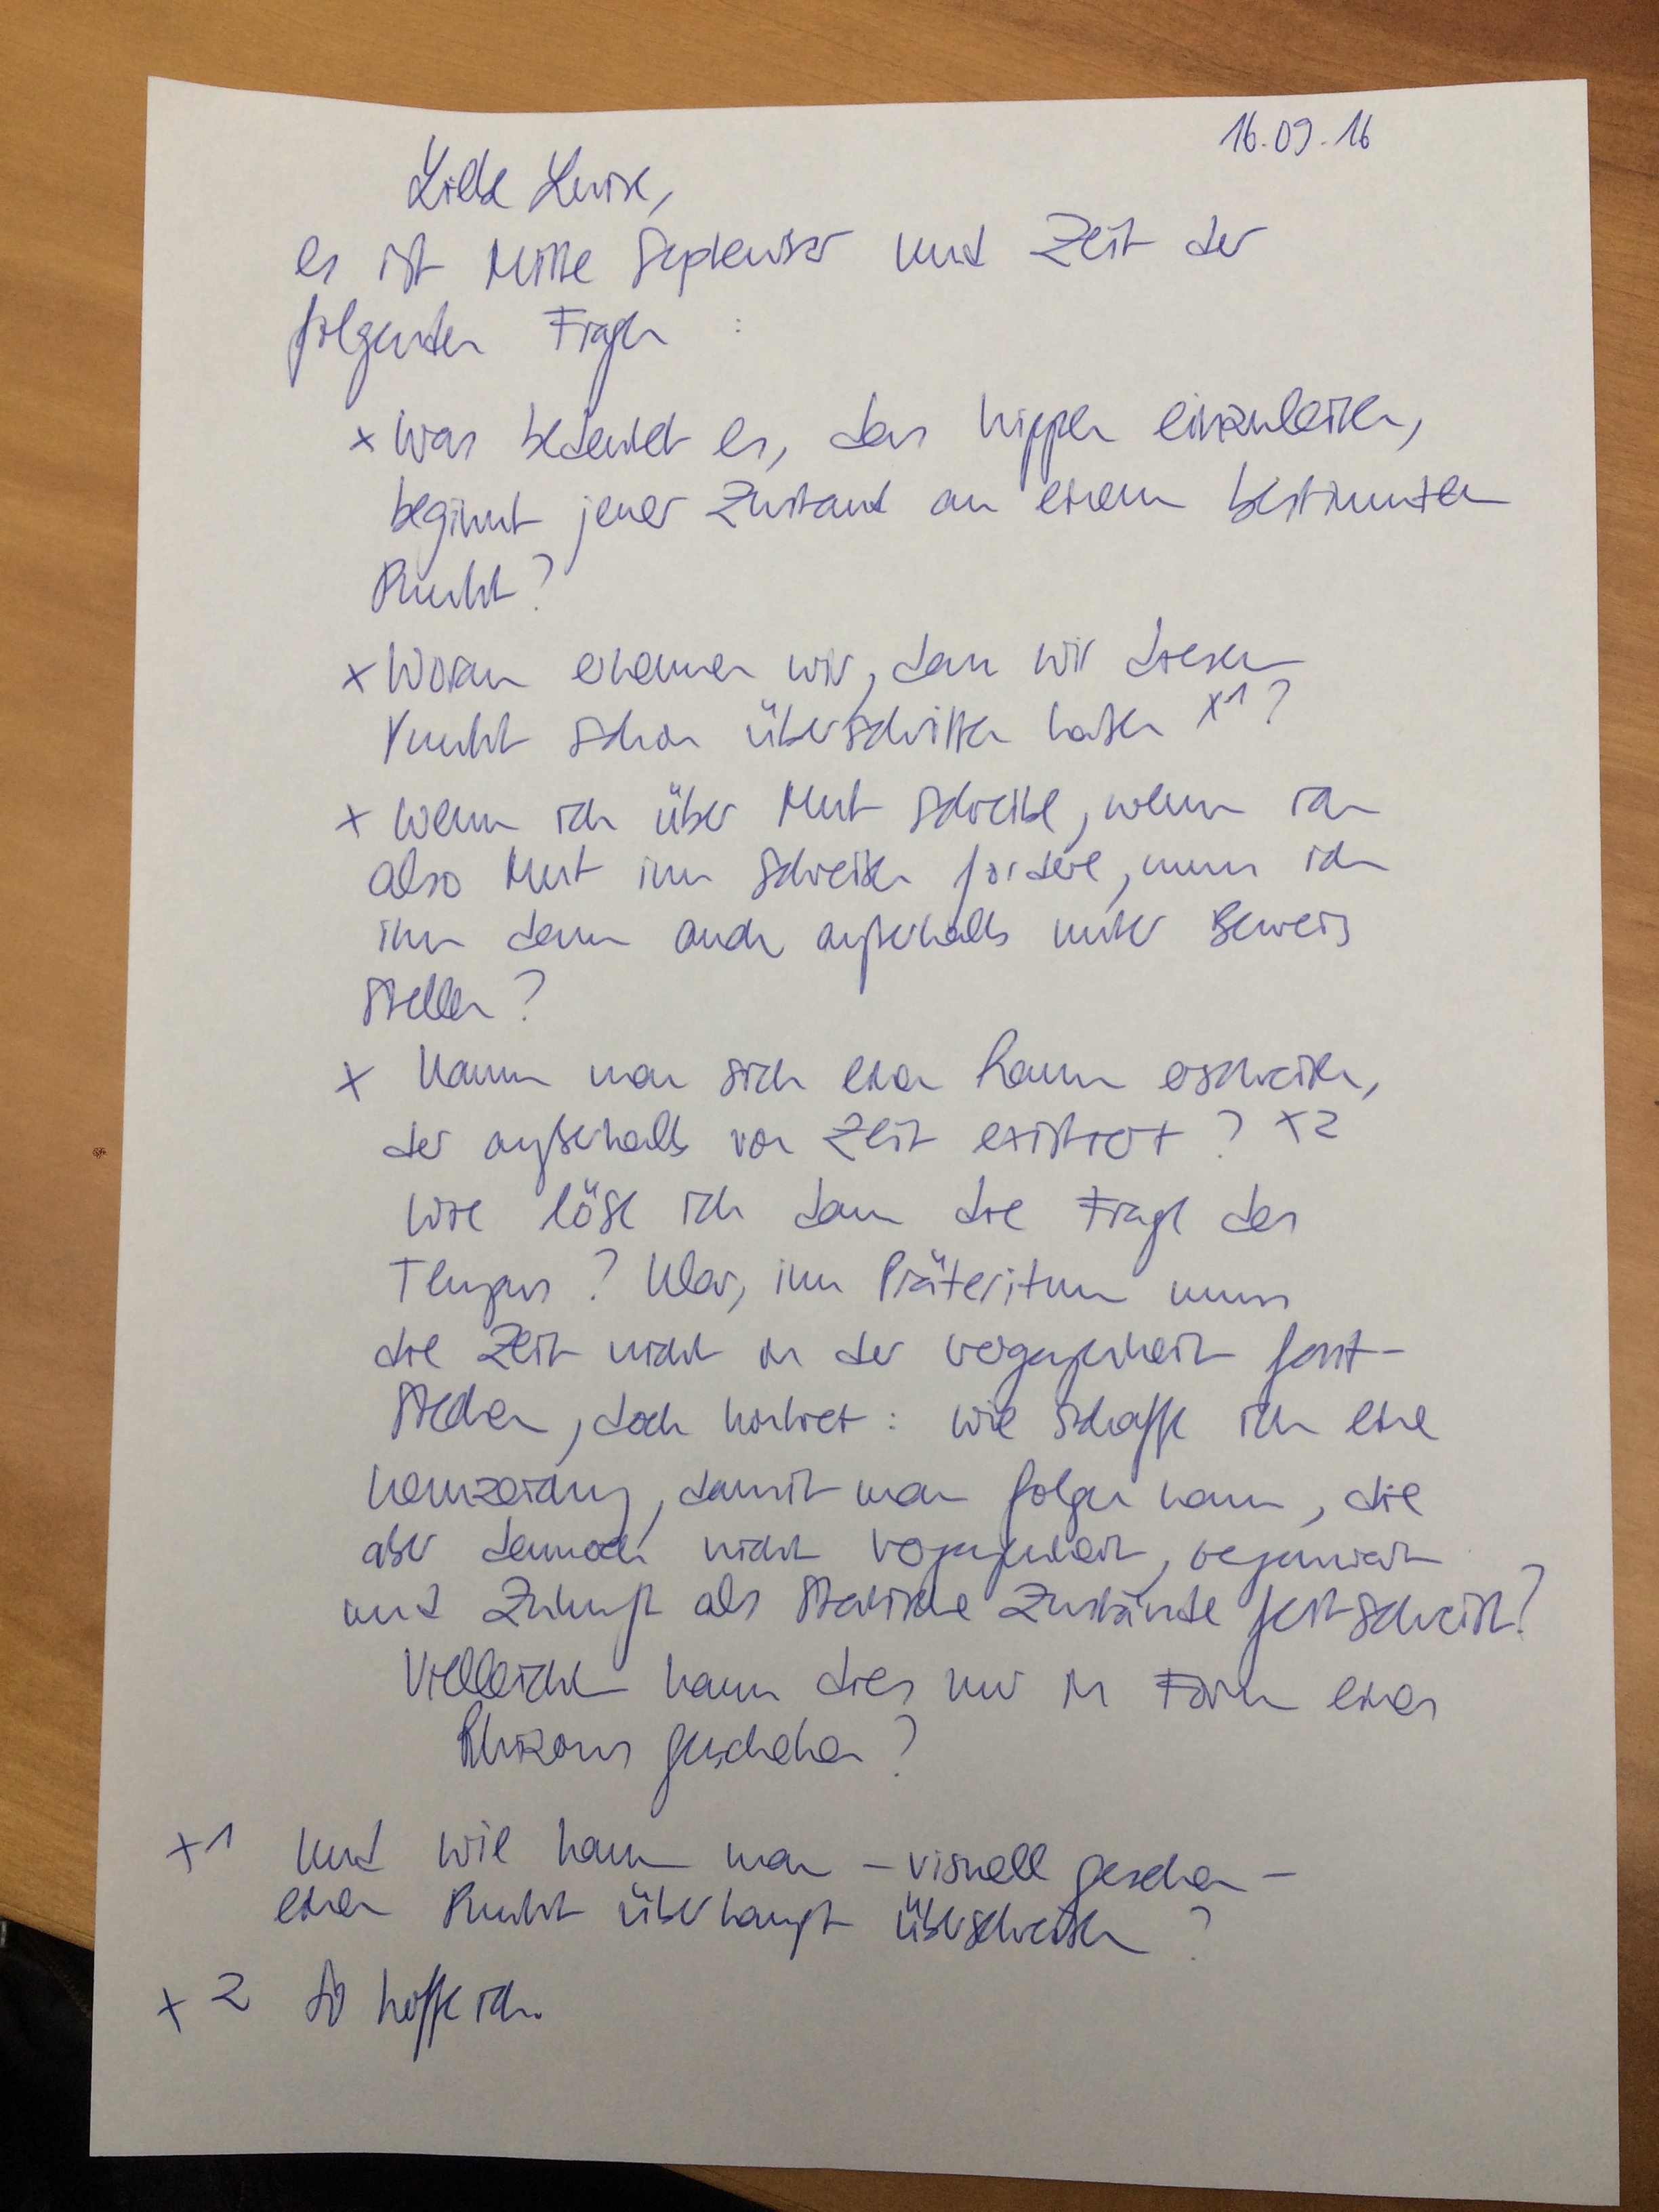 16.09.16
Liebe Luise,
es ist Mitte September und Zeit der
folgenden Fragen :
x Was bedeutet es, das Kippen einzuleiten,
beginnt jener Zustand an einem bestimmten
Punkt?
x Woran erkennen wir, dass wir diesen
Punkt schon überschritten haben x1?
x Wenn ich über Mut schreibe, wenn ich
also Mut im Schreiben fordere, muss ich
ihn dann auch außerhalb unter Beweis
stellen?
x Kann man sich einen Raum erschreiben,
der außerhalb von Zeit existiert? x2
Wie löse ich dann die Frage des
Tempus? Klar, im Präteritum muss
die Zeit nicht in der Vergangenheit fest-
stecken, doch konkret: wie schaffe ich eine
Kennzeichnung, damit man folgen kann, die
aber dennoch nicht Vergangenheit, Gegenwart
und Zukunft als statische Zustände festschreibt?
Vielleicht kann dies nur in Form eines
Rhizoms geschehen?
x1 Und wie kann man – visuell gesehen –
einen Punkt überhaupt überschreiten?
x2 So hoffe ich.